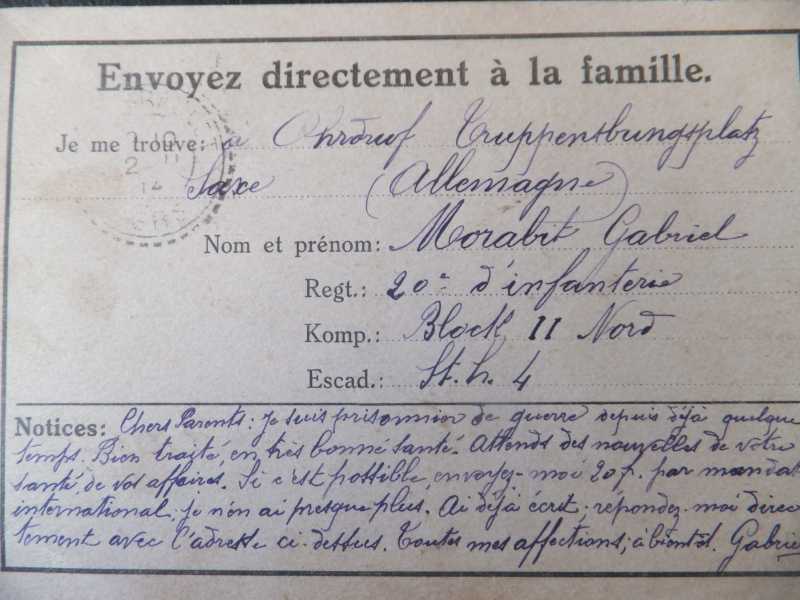 Envoyez directement à la famille.
Je me trouve: à Ohrdruf Truppensbungsplatz
Saxe (Allemagne)
Nom et prénom: Morabit Gabriel
Regt.: 20e d'infanterie
Komp.: Block II Nord
Escad.: St. h. 4
Notices: Chers Parents: Je suis prisonnier de guerre depuis déjà quelque
temps. Bien traité, en très bonne santé. Attends des nouvelles de votre
santé, de vos affaires. Si c'est possible, envoyez-moi 20 f. par mandat
international. je n'en ai presque plus. Ai déjà écrit; répondez-moi direc
tement avec l'adresse ci-dessus. Toutes mes affections; à bientôt. Gabriel